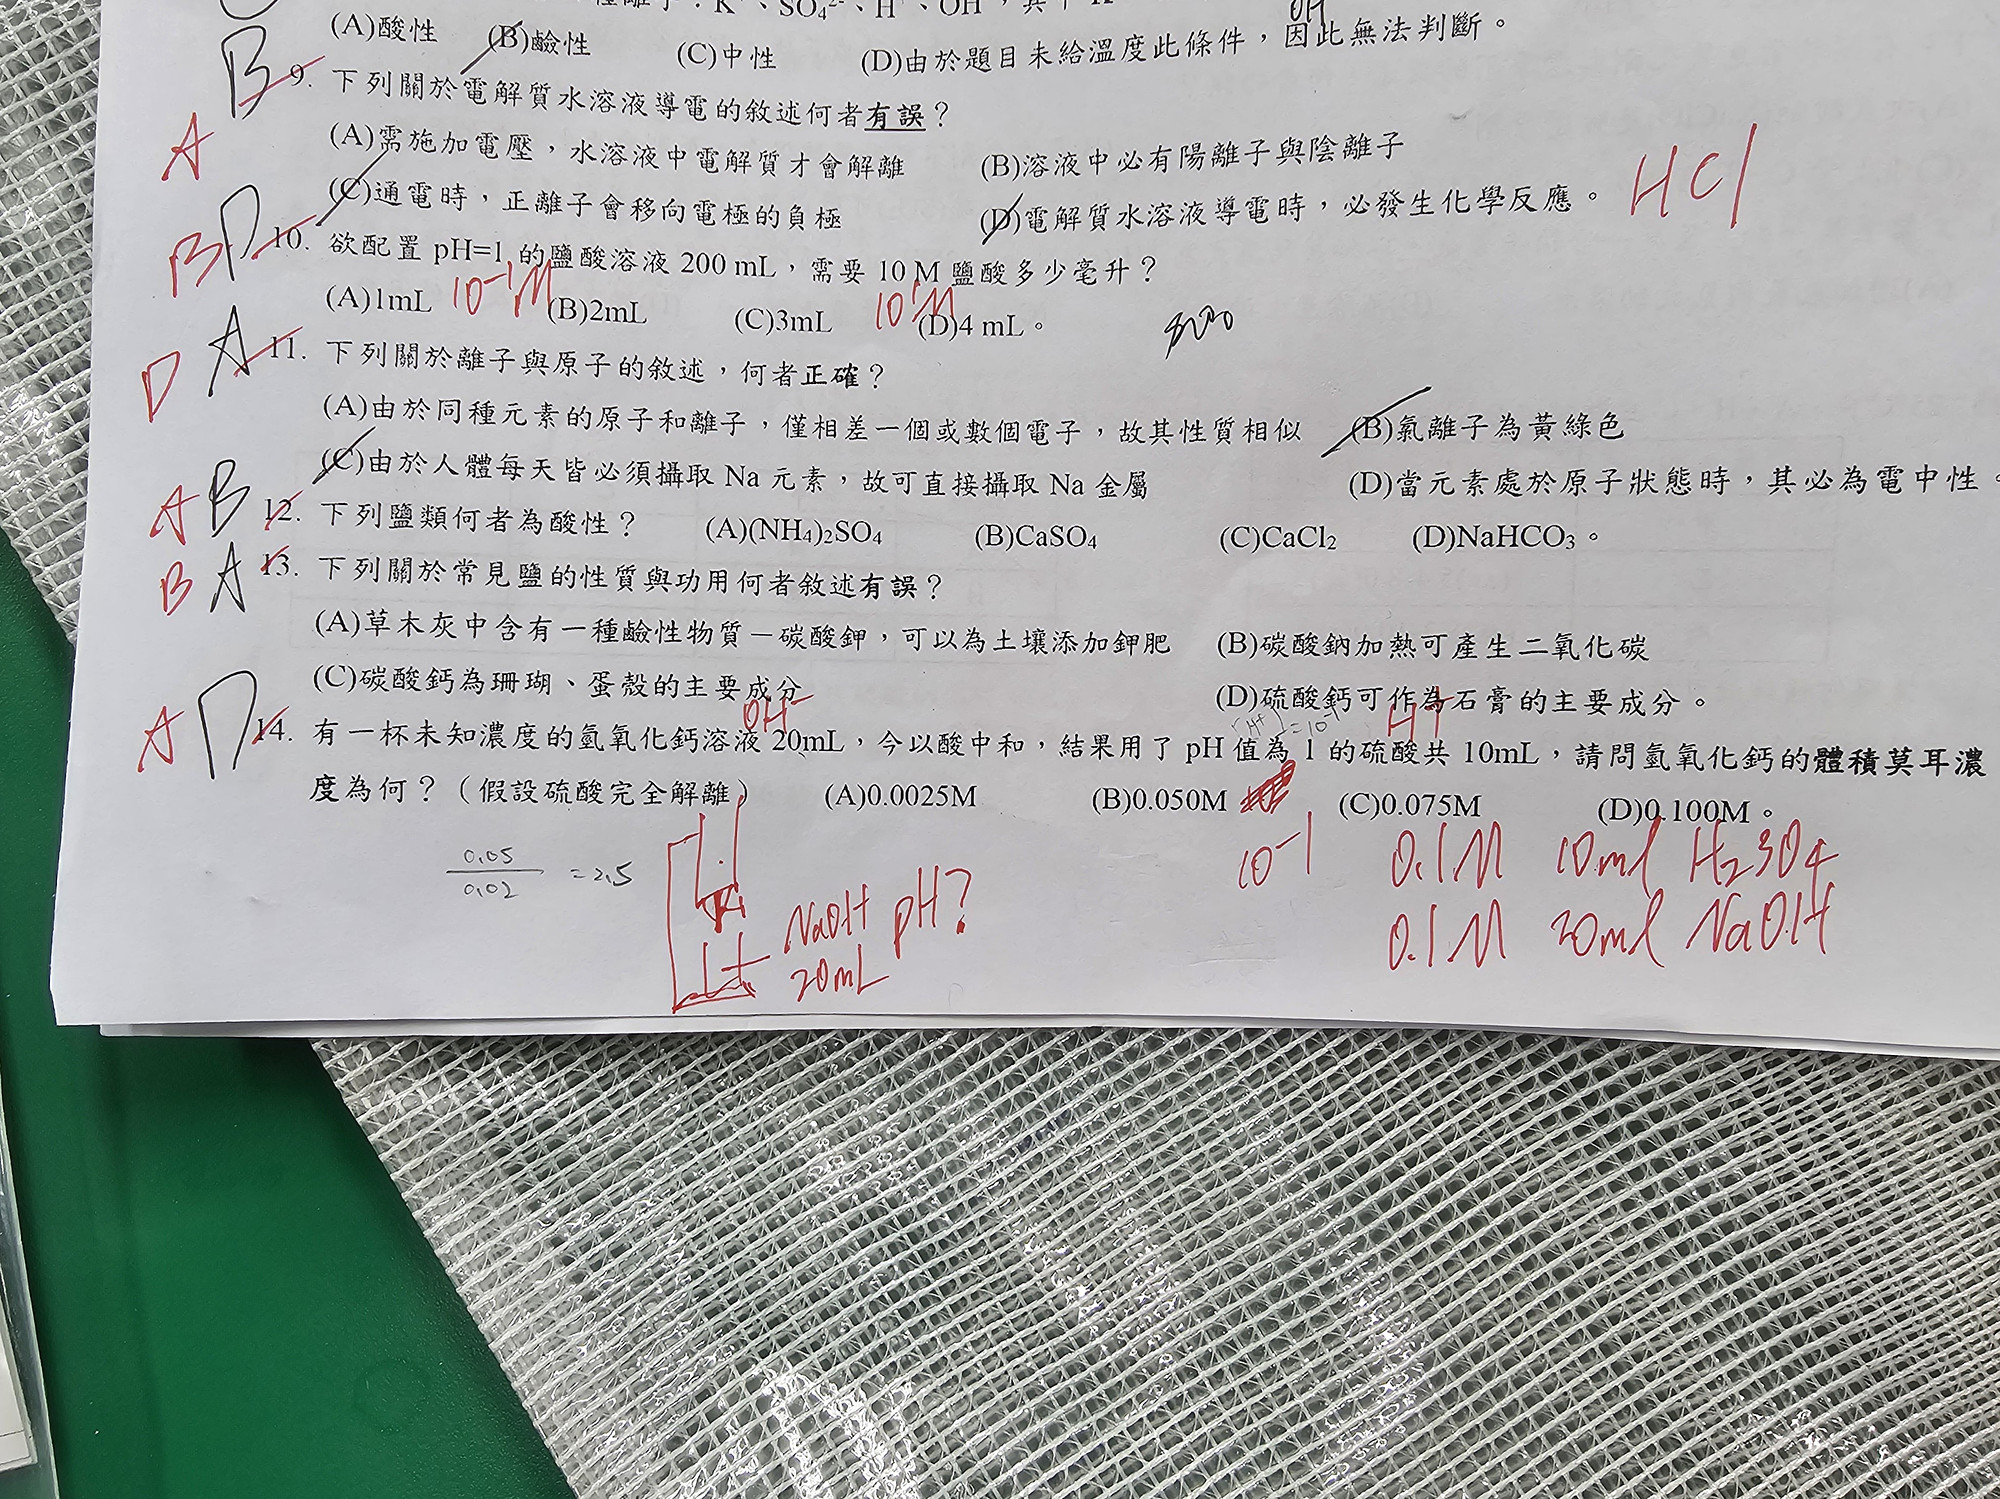 種離子：K⁺、SO₄²⁻、H⁺、OH⁻，其中
OH
(A)酸性 (B)鹼性 (C)中性 (D)由於題目未給溫度此條件，因此無法判斷。
B 9. 下列關於電解質水溶液導電的敘述何者有誤？
A (A)需施加電壓，水溶液中電解質才會解離 (B)溶液中必有陽離子與陰離子
(C)通電時，正離子會移向電極的負極 (D)電解質水溶液導電時，必發生化學反應。 HCl
B D 10. 欲配置 pH=1 的鹽酸溶液 200 mL，需要 10 M 鹽酸多少毫升？
(A)1mL 10⁻¹M (B)2mL (C)3mL 10¹M (D)4 mL。
D A 11. 下列關於離子與原子的敘述，何者正確？
(A)由於同種元素的原子和離子，僅相差一個或數個電子，故其性質相似 (B)氯離子為黃綠色
(C)由於人體每天皆必須攝取 Na 元素，故可直接攝取 Na 金屬 (D)當元素處於原子狀態時，其必為電中性。
A B 12. 下列鹽類何者為酸性？ (A)(NH₄)₂SO₄ (B)CaSO₄ (C)CaCl₂ (D)NaHCO₃。
B A 13. 下列關於常見鹽的性質與功用何者敘述有誤？
(A)草木灰中含有一種鹼性物質－碳酸鉀，可以為土壤添加鉀肥 (B)碳酸鈉加熱可產生二氧化碳
(C)碳酸鈣為珊瑚、蛋殼的主要成分 (D)硫酸鈣可作為石膏的主要成分。
OH⁻ [H⁺]=10⁻¹ H⁺
A D 14. 有一杯未知濃度的氫氧化鈣溶液 20mL，今以酸中和，結果用了 pH 值為 1 的硫酸共 10mL，請問氫氧化鈣的體積莫耳濃
度為何？（假設硫酸完全解離） (A)0.0025M (B)0.050M (C)0.075M (D)0.100M。
0.05
0.02
=2.5
10⁻¹ 0.1M 10ml H₂SO₄
NaOH pH? 0.1M 20ml NaOH
20mL